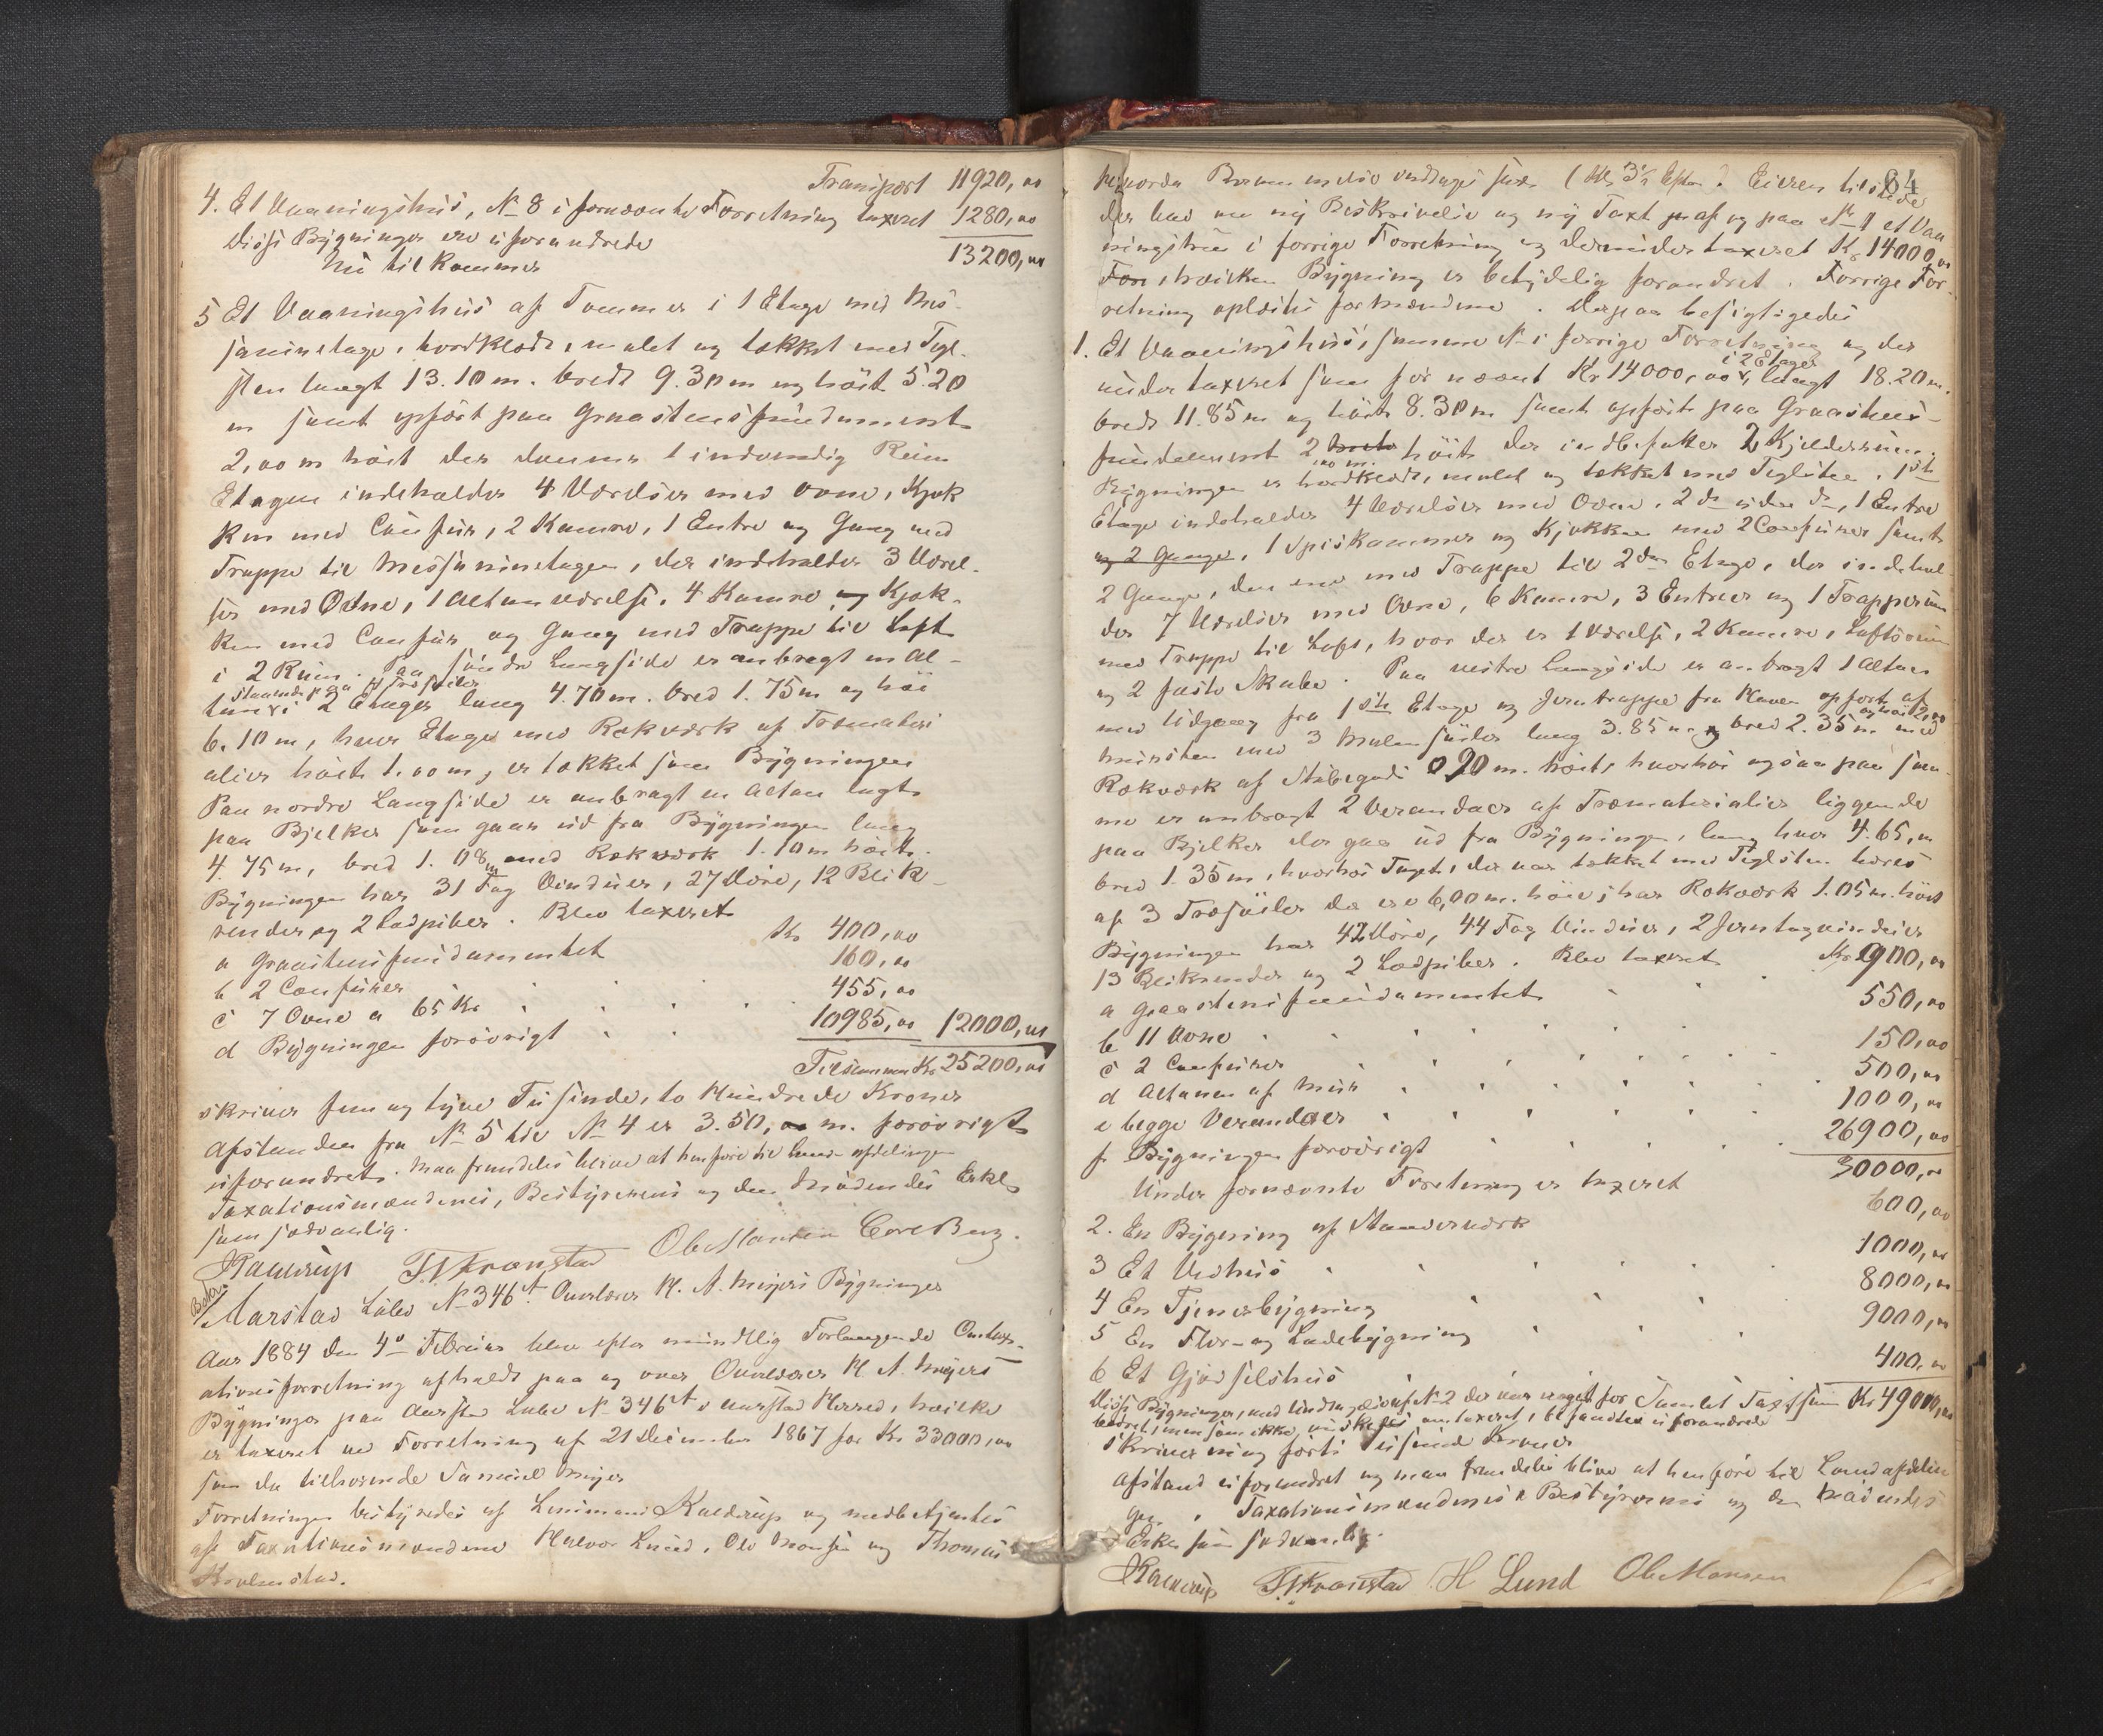 Transport 11920,00
4. Et Vaaningshus, No 8 i fornævnte Forretning taxeret 1280,00
Disse Bygninger ere uforandrede 13200,00
Nu tilkommer
5 Et Vaaningshus af Tømmer i 1 Etage med Mes-
saninetage, bordklædt, malet og tækket med Tegl-
sten langt 13.10 m. bredt 9.30 m og høit 5.20
m samt opført paa Graastensfundament
2,00 m høit der danner 1 indvendig Rum
Etagen indeholder 4 Værelser med Ovne, Kjøk
ken med Comfur, 2 Kamre, 1 Entre og Gang med
Trappe til Messaninetagen, der indeholder 3 Værel-
ser med Ovne, 1 Altanværelse, 4 Kamre og Kjøk-
ken med Comfur og Gang med Trappe til Loft
i 2 Rum. Paa søndre Langside er anbragt en Al-
staaende paa Træstolper
tan i 2 Etager lang 4.70 m. bred 1.75 m og høi
6.10 m, hver Etage med Rækværk af Træmateri
alier høit 1.00 m, er tækket som Bygningen
Paa nordre Langside er anbragt en Altan lagt
paa Bjelker som gaar ud fra Bygningen lang
4.75 m, bred 1.08 m med Rækværk 1.10 m høit.
Bygningen har 31 Fag Vinduer, 27 Døre, 12 Blik-
render og 2 Lødpiber. Blev taxeret
a Graastensfundamentet Kr 400,00
b 2 Comfurer 160,00
c 7 Ovne a 65 Kr 455,00
d Bygningen forøvrigt 10985,00 12000,00
Tilsammen Kr 25200,00
skriver fem og tyve Tusinde, to Hundrede Kroner
Afstanden fra No 5 til No 4 er 3.50, m. forøvrigt
uforandret. Maa fremdeles blive at henføre til Land-afdelingen
Taxationsmændenes, Bestyrerens og den Mødendes Erkl.
som sædvanlig.
JKaldrup TTKronstad Ole Monsen Carl Berg.
Aarstad Løbe No 346 A. Overlærer H. A. Meyers Bygninger
Aar 1884 den 4de Februar blev efter mundtlig Forlangende Omtax-
ationsforretning afholdt paa og over Overlærer H A. Meyers
Bygninger paa Aarstad Løbe No 346 A i Aarstad Herred, hvilke
er taxeret ved Forretning af 21 December 1867 for Kr 33000,00
som da tilhørende Samuel Meyer
Forretningen bestyredes af Lensmand Kaldrup og medbetjentes
af Taxationsmændene Halvor Lund, Ole Monsen og Thomas
Kronstad.
84
Eieren tilstede
der bad om ny Beskrivelse og ny Taxt af og paa No 1 et Vaa
ningshus i forrige Forretning og derunder taxeret Kr 14000,00
hvilken Bygning er betydelig forandret. Forrige For-
retning oplæstes for Mændene. Derpaa besigtigedes
1. Et Vaaningshus, samme No i forrige Forretning og der
i 2 Etager
under taxeret som før nævnt Kr 14000,00, langt 18.20 m.
bredt 11.85 m og høit 8.30 m samt opført paa Graastens-
fundament 2 høit der indbefatter 2 Kjælderrum.
,00 m.
Bygningen er bordklædt, malet og tækket med Teglsten. 1ste
Etage indeholder 4 Værelser med Ovne, 2 do uden do, 1 Entre
og 2 Gange, 1 Spiskammer og Kjøkken med 2 Comfurer samt
2 Gange, den ene med Trappe til 2den Etage, der indehol
der 7 Værelser med Ovne, 6 Kamre, 3 Entreer og 1 Trapperum
med Trappe til Loft, hvor der er 1 Værelse, 2 Kamre, Loftsrum
og 2 faste Skabe. Paa vestre Langside er anbragt 1 Altan
med Udgang fra 1ste Etage og Jerntrappe fra Haven opført af
og høi 2,00
Mursten med 3 Mursøiler lang 3.85 m, bred 2.35 m med
Rækværk af Støbegods 0,90 m. høit, hvorhos ogsaa paa sam-
me er anbragt 2 Verandaer af Træmaterialier liggende
paa Bjelker der gaa ud fra Bygningen, lang hver 4.65, m
bred 1.35 m, hvorhos Taget, der var tækket med Teglsten bæres
af 3 Træsøiler der ere 6,00 m. høie; har Rækværk 1.05 m. høit
Bygningen har 42 Døre, 44 Fag Vinduer, 2 Jerntagvinduer
13 Blikrender og 2 Lødpiber. Blev taxeret
a Graastensfundamentet Kr 900,00
b 11 Ovne 550,00
c 2 Comfurer 150,00
d Altanen af Mur 500,00
e begge Verandaer 1000,00
f. Bygningen forøvrigt 26900,00
30000,00
Under fornævnte Forretning er taxeret
2. En Bygning af Stavværk 600,00
3 Et Vedhus 1000,00
4 En Tjenerbygning 8000,00
5 En Flor- og Ladebygning 9000,00
6 Et Gjødselshus 400,00
Disse Bygninger, med Undtagelse af No 2 der var noget for Samlet Taxtsum Kr 49000,00
bedret, men som ikke ønskedes omtaxeret, befandtes uforandrede
skriver ni og førti Tusind Kroner
Afstand uforandret og maa fremdeles blive at henføre til Landafdelin
gen. Taxationsmændenes Bestyrerens og den Mødendes
Erkl. som sædvanlig.
JKaldrup TTKronstad H Lund Ole Monsen